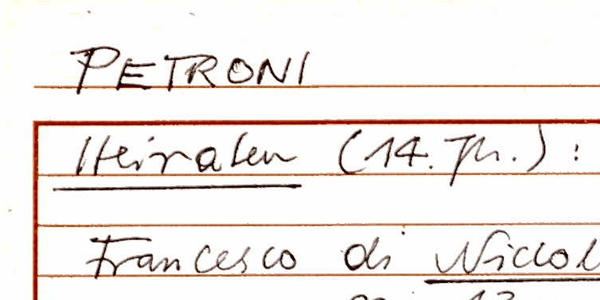 PETRONI
Heiraten (14. Jh.):
Francesco di Niccol